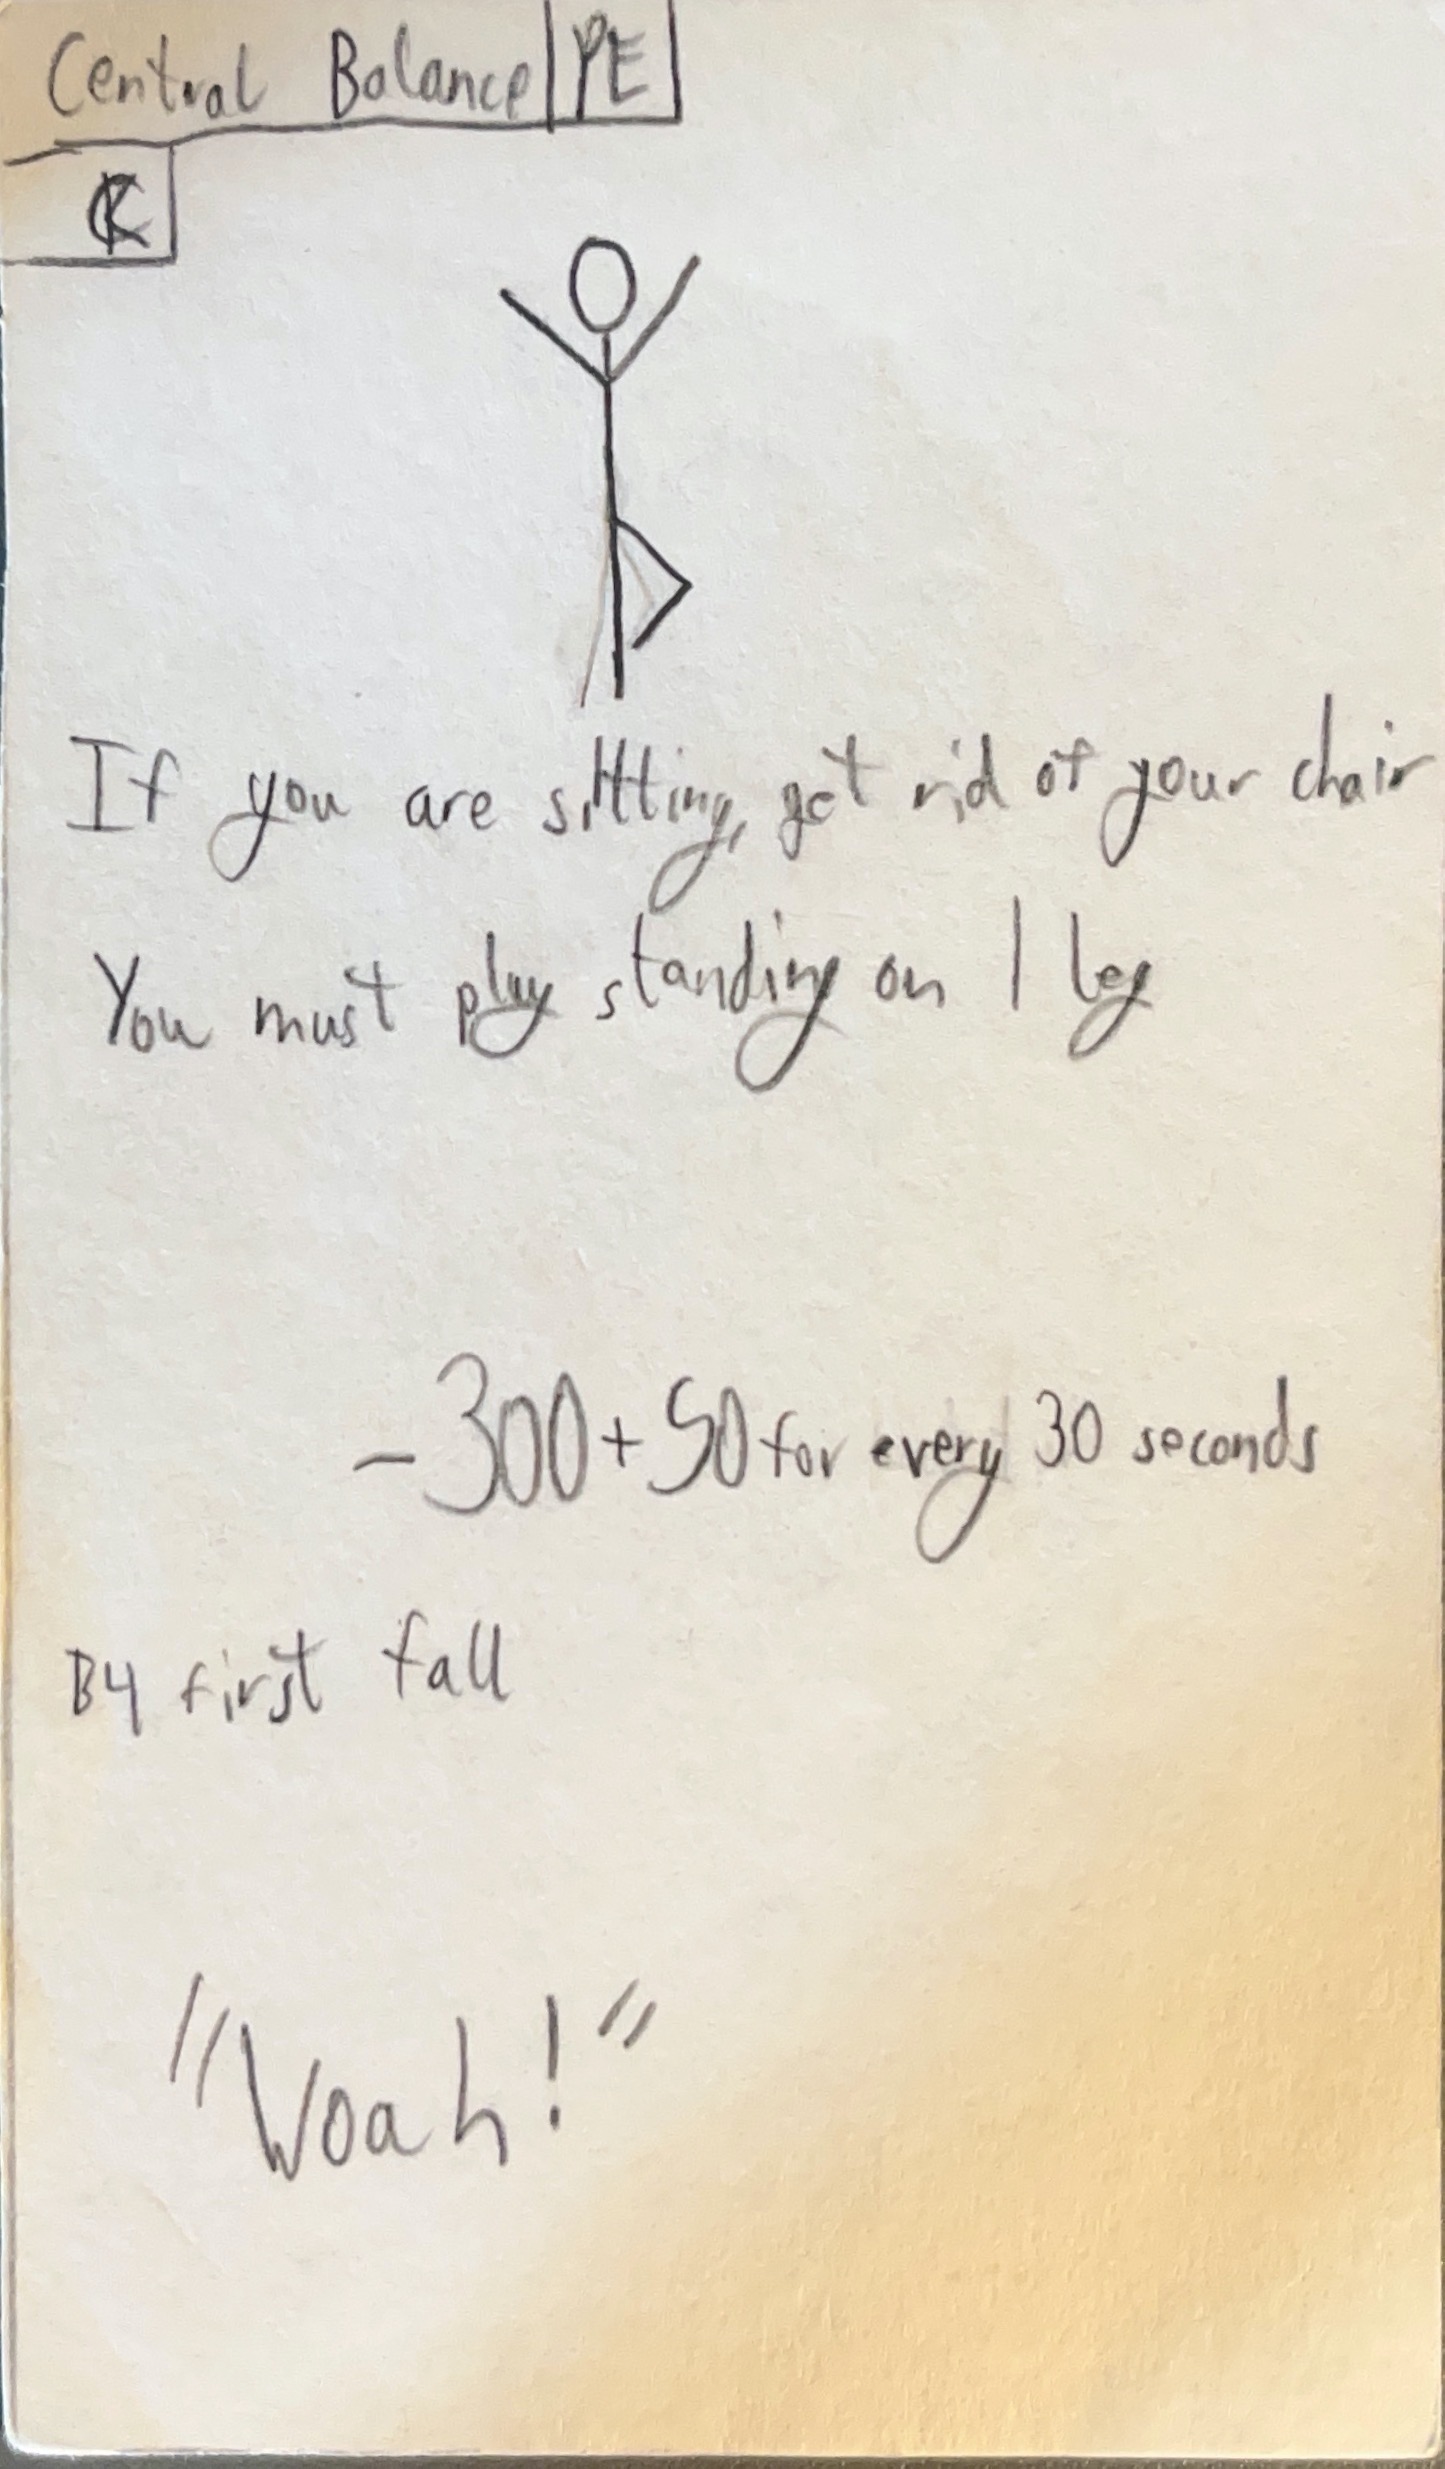 Central Balance PE
If you are sitting, get rid of your chair
You must play standing on 1 leg
-300 + 50 for every 30 seconds
B4 first fall
"Woah!"